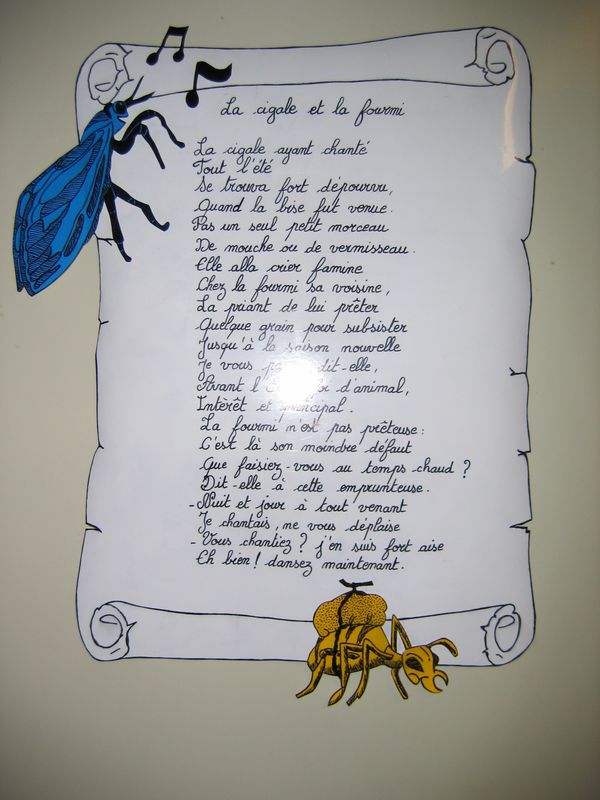 La cigale et la fourmi
La cigale ayant chanté
Tout l'été
Se trouva fort dépourvu,
Quand la bise fut venue.
Pas un seul petit morceau
De mouche ou de vermisseau.
Elle alla crier famine
Chez la fourmi sa voisine,
La priant de lui prêter
Quelque grain pour subsister
Jusqu'à la saison nouvelle
Je vous dit-elle,
Avant d'animal,
Intèrêt et principal.
La fourmi n'est pas prêteuse :
C'est là son moindre défaut
Que faisiez-vous au temps chaud ?
Dit-elle à cette emprunteuse.
- Nuit et jour à tout venant
Je chantais, ne vous déplaise
- Vous chantiez ? j'en suis fort aise
Eh bien ! dansez maintenant.